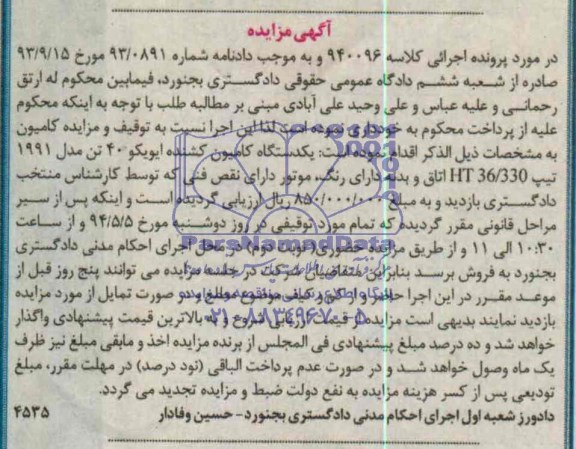 آگهی مزایده
در مورد پرونده اجرائی کلاسه ۹۴۰۰۹۶ و به موجب دادنامه شماره ۹۳/۰۸۹۱ مورخ ۹۳/۹/۱۵
صادره از شعبه ششم دادگاه عمومی حقوقی دادگستری بجنورد، فیمابین محکوم له ارتق
رحمانی و علیه عباس و علی وحید علی آبادی مبنی بر مطالبه طلب با توجه به اینکه محکوم
علیه از پرداخت محکوم به خودداری نموده است لذا این اجرا نسبت به توقیف و مزایده کامیون
به مشخصات ذیل الذکر اقدام نموده است: یکدستگاه کامیون کشنده ایویکو ۴۰ تن مدل ۱۹۹۱
تیپ HT 36/330 اتاق و بدنه دارای رنگ، موتور دارای نقص فنی که توسط کارشناس منتخب
دادگستری بازدید و به مبلغ ۸۵۰/۰۰۰/۰۰۰ ریال ارزیابی گردیده است و اینکه پس از سیر
مراحل قانونی مقرر گردیده که تمام مورد توقیفی در روز دوشنبه مورخ ۹۴/۵/۵ و از ساعت
۱۰:۳۰ الی ۱۱ و از طریق مزایده حضوری (نوبت دوم) در محل اجرای احکام مدنی دادگستری
بجنورد به فروش برسد بنابراین متقاضیان شرکت در جلسه مزایده می توانند پنج روز قبل از
موعد مقرر در این اجرا حاضر و از کم و کیف موضوع مطلع و در صورت تمایل از مورد مزایده
بازدید نمایند بدیهی است مزایده از قیمت ارزیابی شروع و به بالاترین قیمت پیشنهادی واگذار
خواهد شد و ده درصد مبلغ پیشنهادی فی المجلس از برنده مزایده اخذ و مابقی مبلغ نیز ظرف
یک ماه وصول خواهد شد و در صورت عدم پرداخت الباقی (نود درصد) در مهلت مقرر، مبلغ
تودیعی پس از کسر هزینه مزایده به نفع دولت ضبط و مزایده تجدید می گردد.
دادورز شعبه اول اجرای احکام مدنی دادگستری بجنورد - حسین وفادار
۴۵۳۵
ParsNamadData
۰۲۱-۸۸۳۴۹۶۷۰-۵